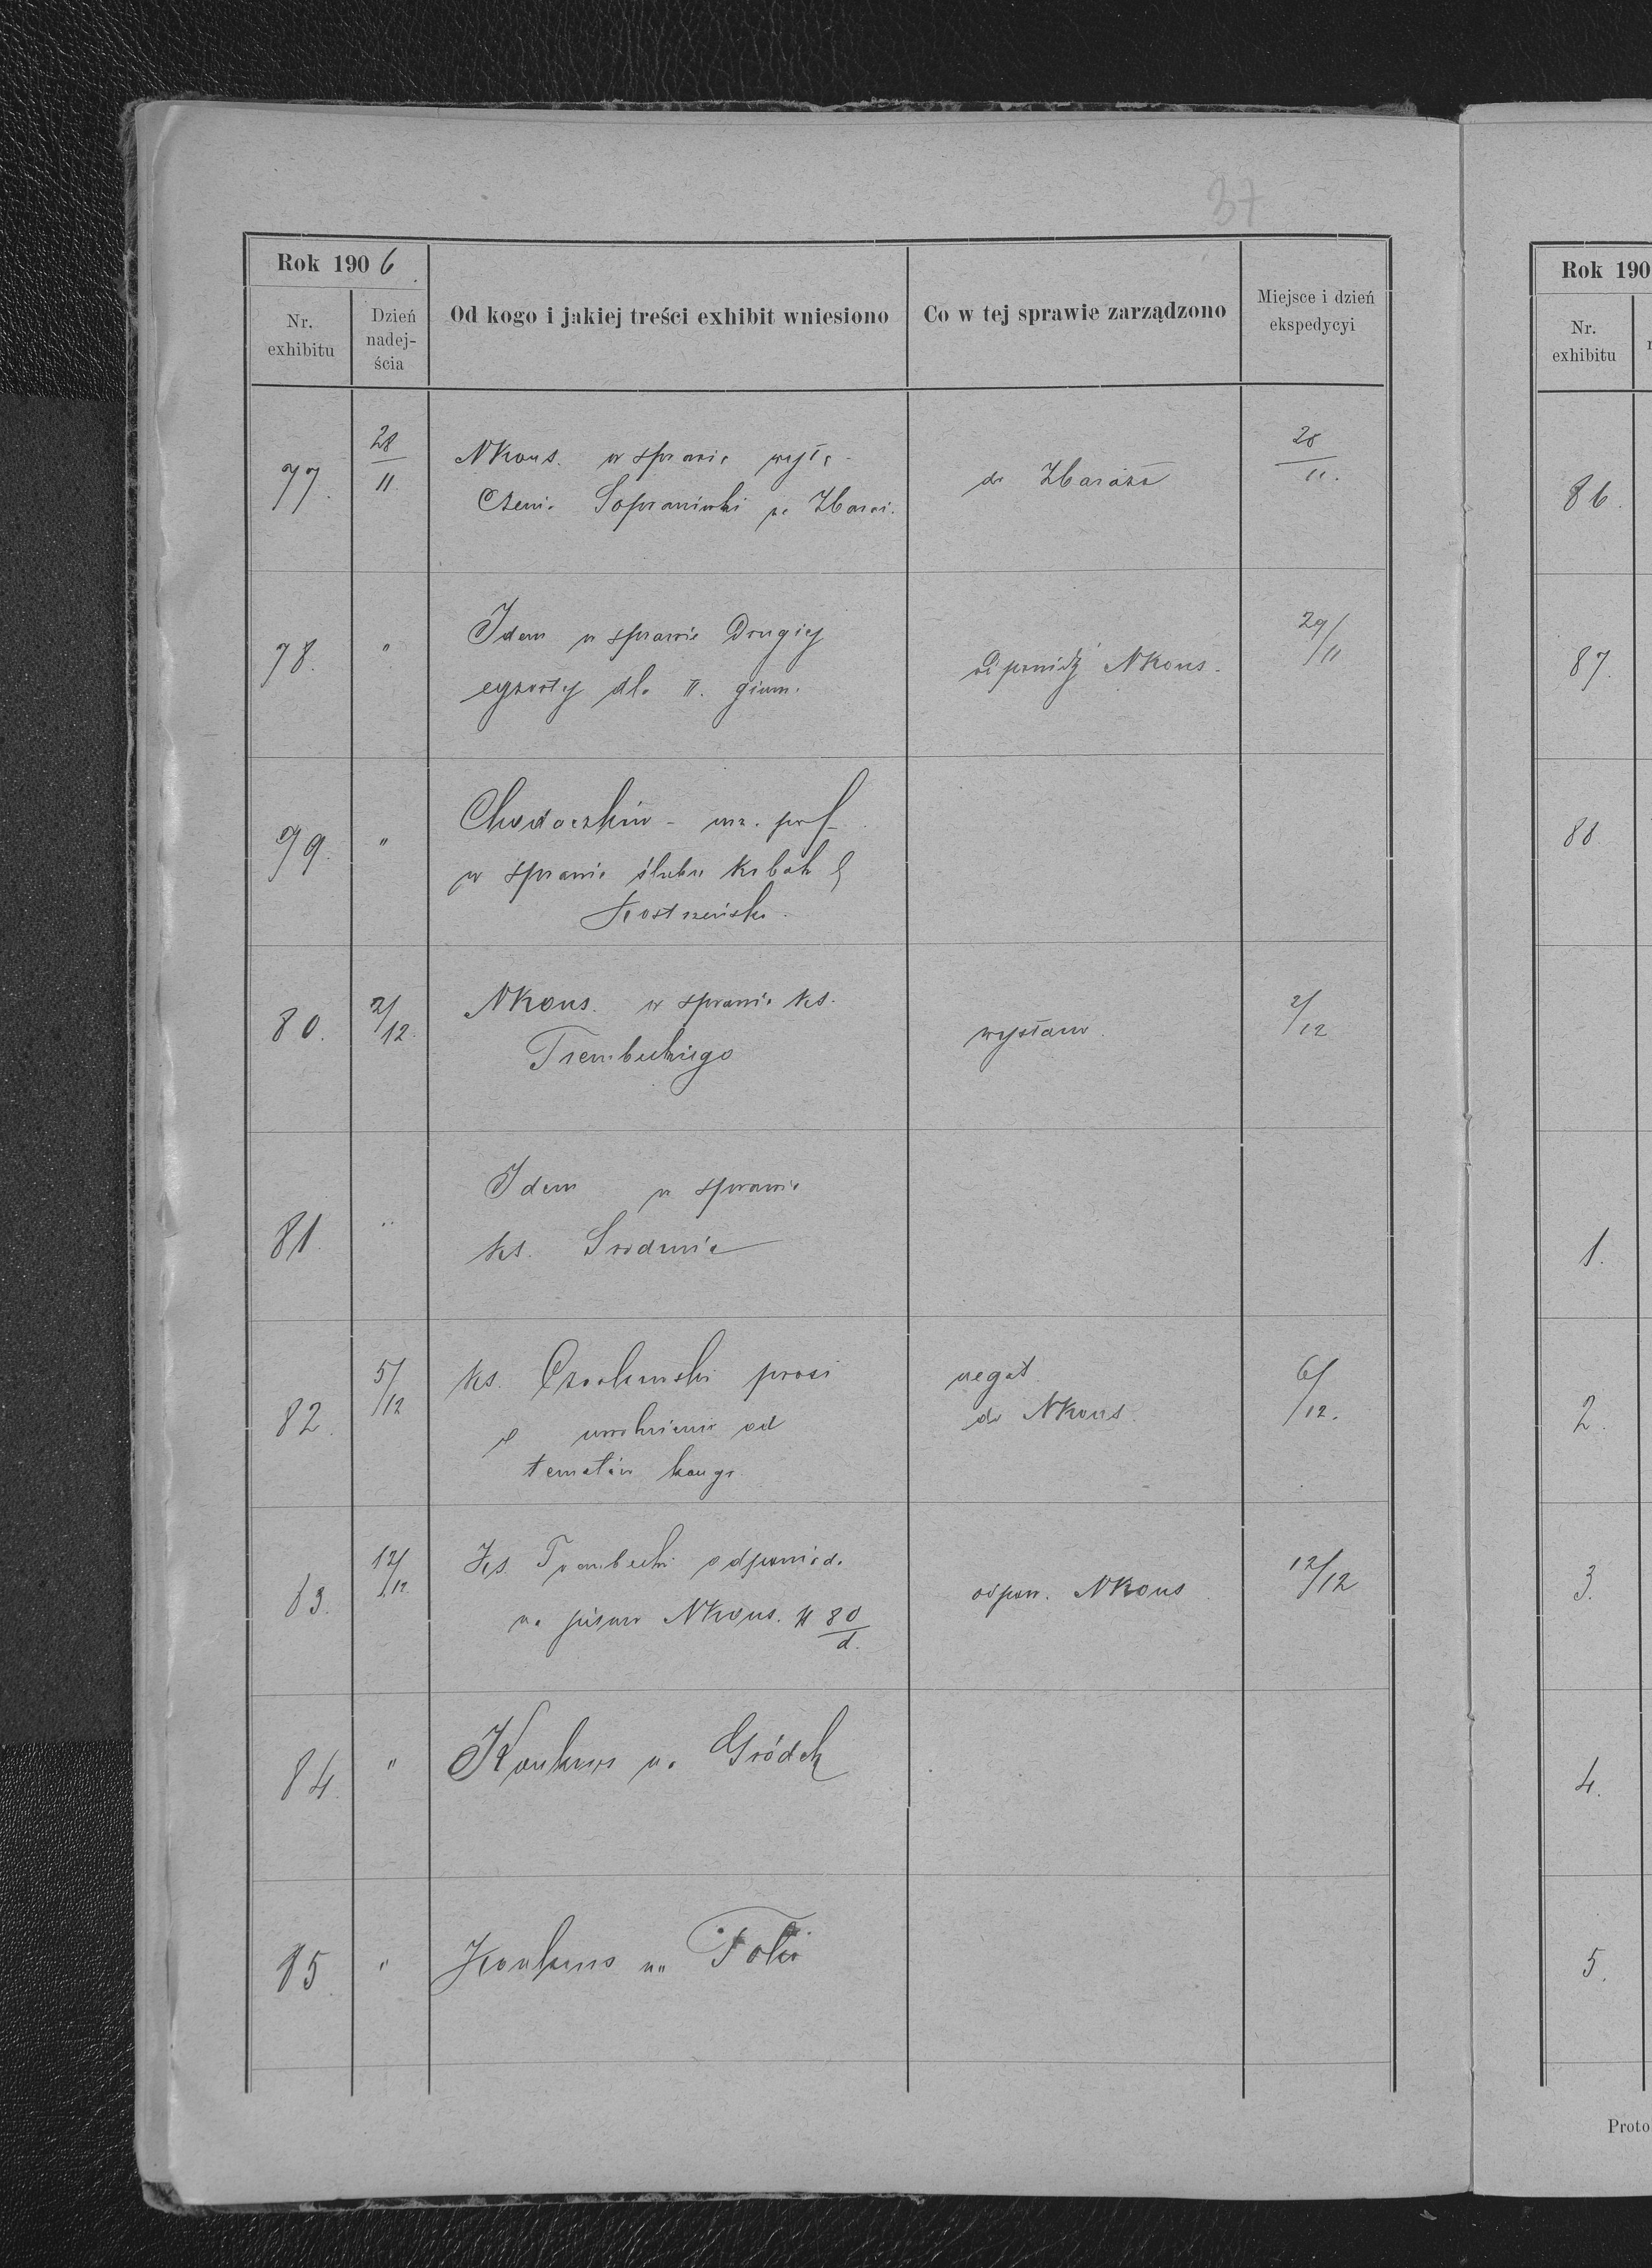 37
Rok 1906
Nr. exhibitu
Dzień nadejścia
Od kogo i jakiej treści exhibit wniesiono
Co w tej sprawie zarządzono
Miejsce i dzień ekspedycyi
77. 28/11 NKons. w sprawie
do Zbaraża 28/11.
78. " Idem w sprawie Drugiej
egzorty dla II. gimn.
odpowiedź NKons. 29/11
79. "
w sprawie ślubu
80. 2/12. NKons. w sprawie ks.
Trembeckiego
wystaw. 2/12
81. " Idem w sprawie
ks.
82. 5/12 ks. prosi
o uwolnienie od
tematów kongr.
negat.
do NKons. 6/12.
83. 12/12 Ks. Trembecki odpowiad.
na pismo NKons. N 80/d.
odpow. NKons. 12/12
84. " Konkurs na Gródek
85. " Konkurs na
Rok 190
Nr.
exhibitu
86.
87.
88
1.
2.
3.
4.
5.
Proto